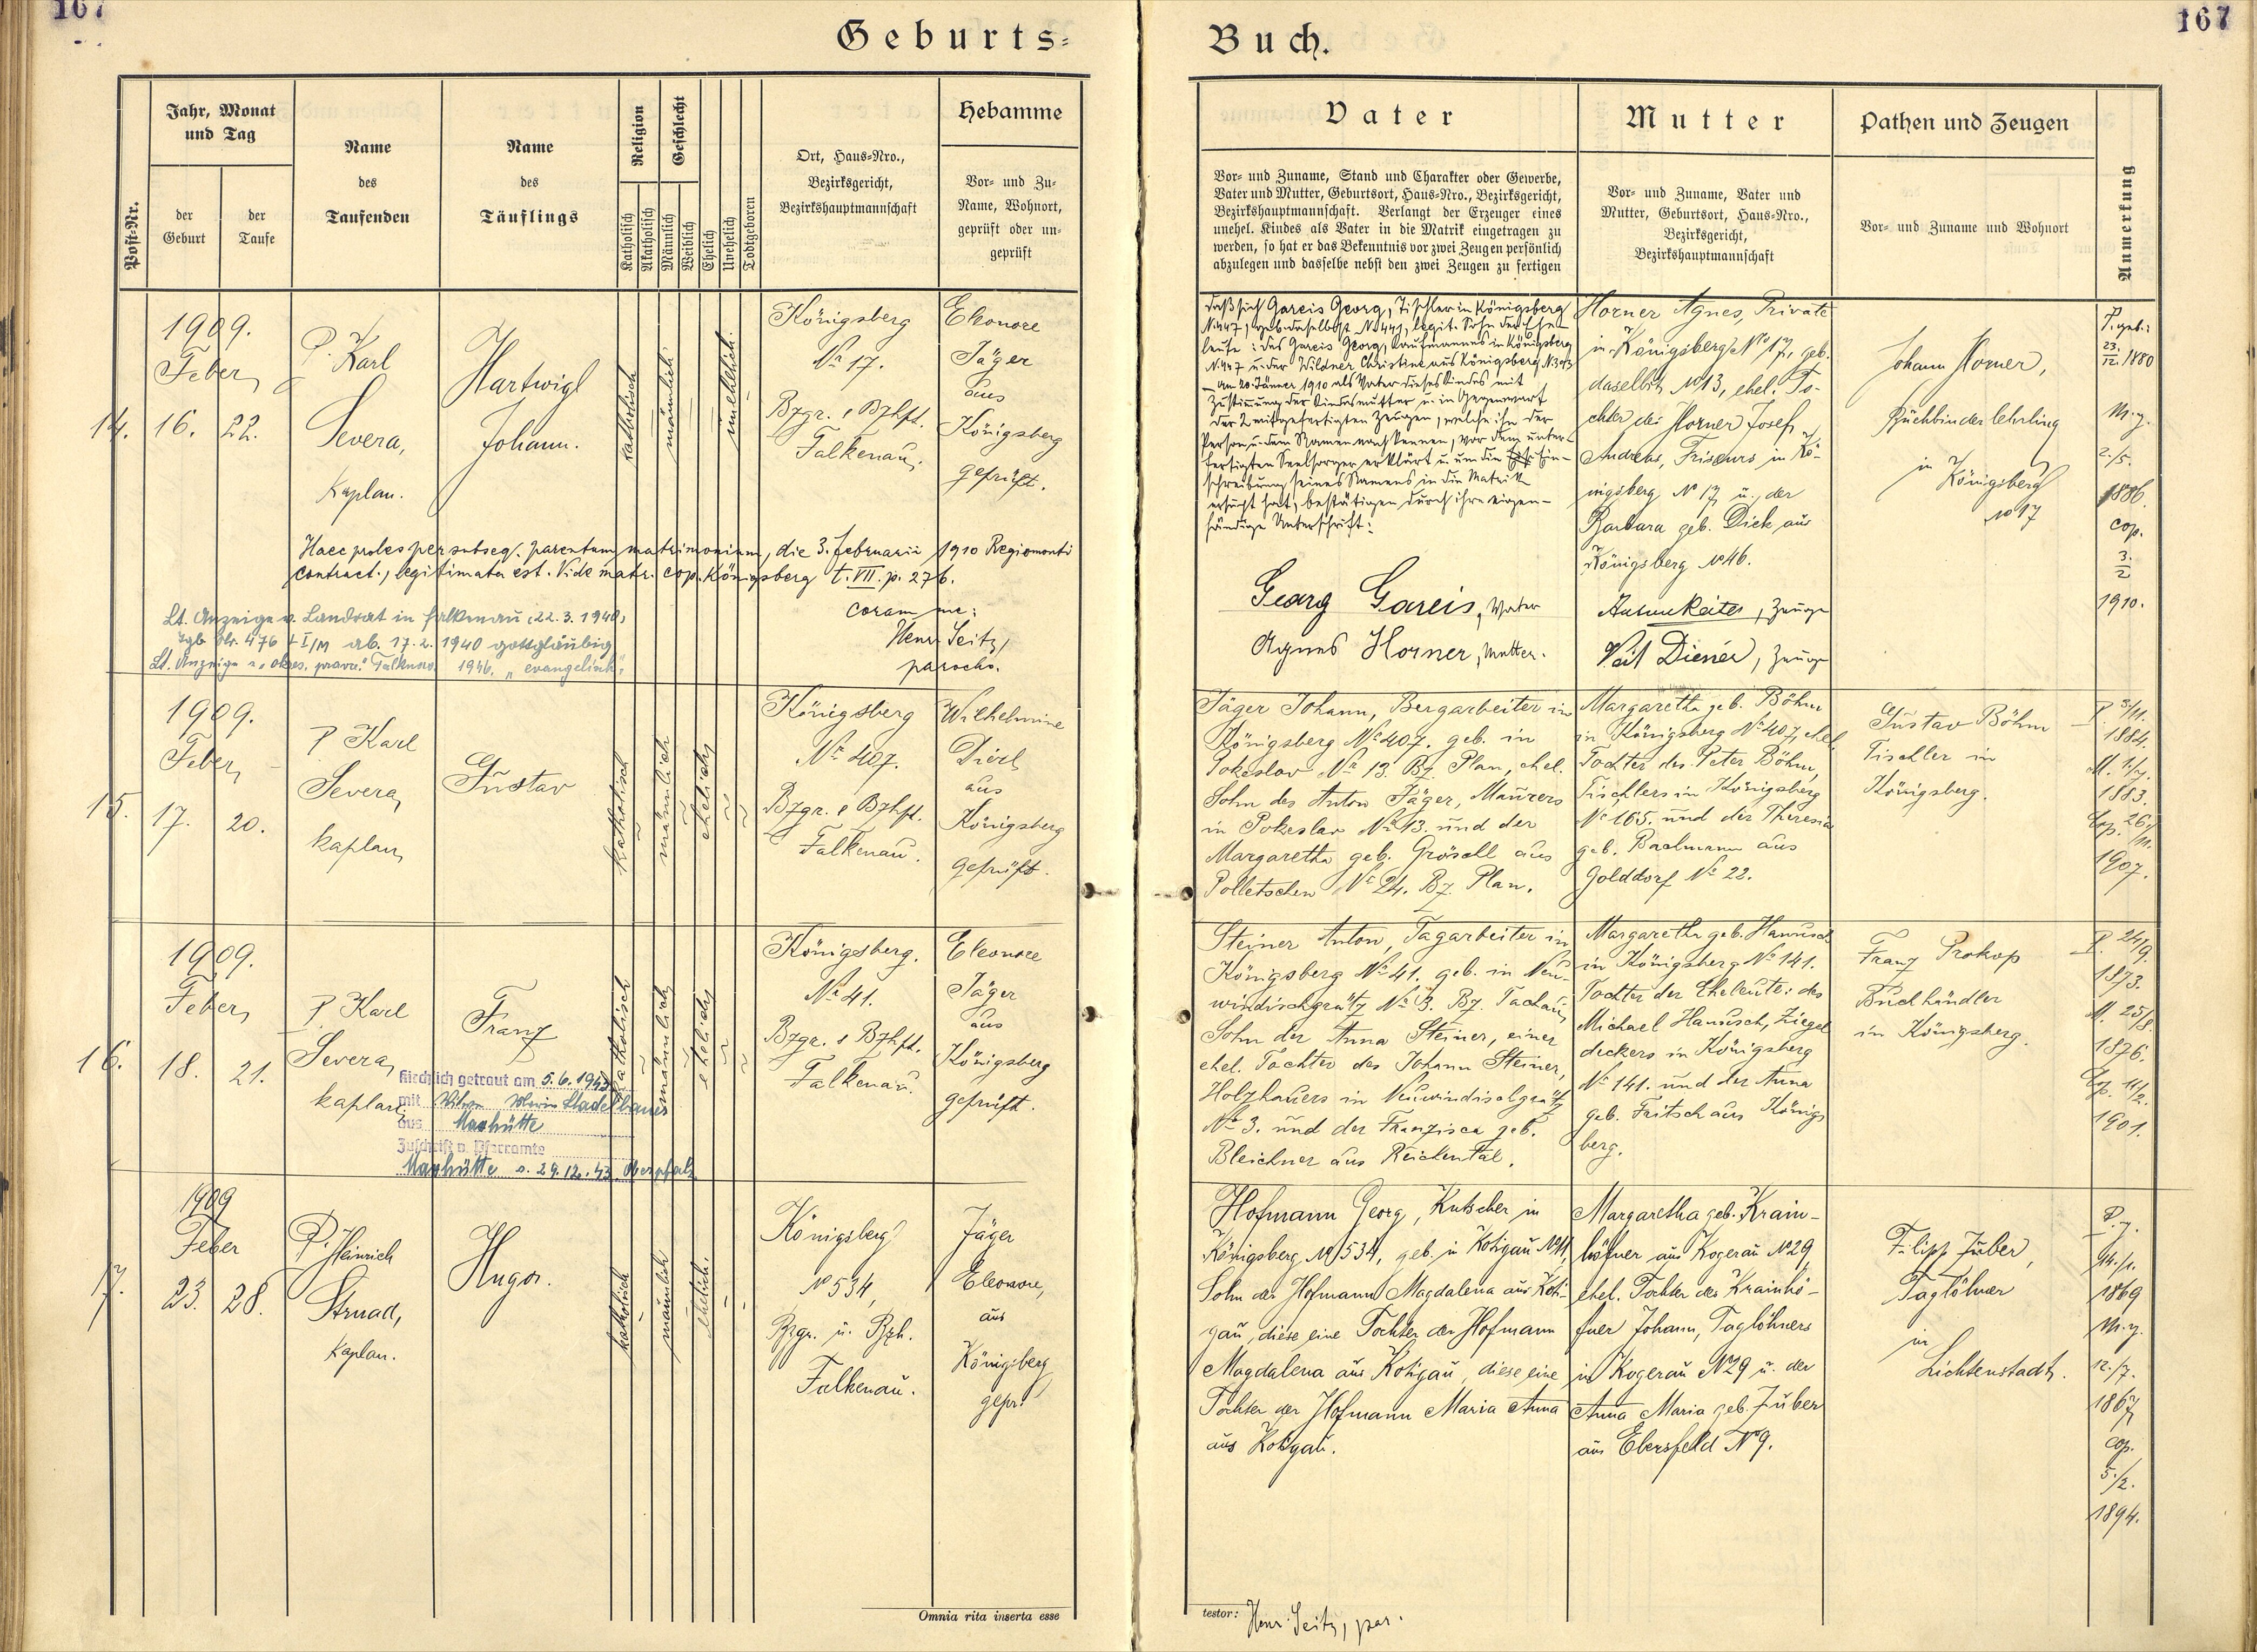 167
167
Geburts-
Buch.
Post-Nr.
Jahr, Monat
und Tag
der
Geburt
der
Taufe
Name
des
Taufenden
Name
des
Täuflings
Religion
Katholisch
Akatholisch
Geschlecht
Männlich
Weiblich
Ehelich
Unehelich
Todtgeboren
Ort, Haus-Nro.,
Bezirksgericht,
Bezirkshauptmannschaft
Hebamme
Vor- und Zu-
Name, Wohnort,
geprüft oder un-
geprüft
Vater
Vor- und Zuname, Stand und Charakter oder Gewerbe,
Vater und Mutter, Geburtsort, Haus-Nro., Bezirksgericht,
Bezirkshauptmannschaft. Verlangt der Erzeuger eines
unehel. Kindes als Vater in die Matrik eingetragen zu
werden, so hat er das Bekenntnis vor zwei Zeugen persönlich
abzulegen und dasselbe nebst den zwei Zeugen zu fertigen
Mutter
Vor- und Zuname, Vater und
Mutter, Geburtsort, Haus-Nro.,
Bezirksgericht,
Bezirkshauptmannschaft
Pathen und Zeugen
Vor- und Zuname und Wohnort
Anmerkung
14.
1909.
Feber
16.
22.
P. Karl
Severa,
Kaplan.
Hartwigl
Johann.
katholisch
männlich
unehelich.
Königsberg
No 17.
Bzgr. & Bzhft.
Falkenau.
Eleonore
Jäger
aus
Königsberg
geprüft.
Daß sich Gareis Georg, Tischler in Königsberg
N.447, geb. daselbst N.447, legit. Sohn der Ehe-
leute: des Gareis Georg, Kaufmannes in Königsberg
N.447 u. der Wildner Christine aus Königsberg
am 20. Jänner 1910 als Vater dieses Kindes mit
Zustimmung der Kindesmutter u. in Gegenwart
der 2 mitgefertigten Zeugen, welche ihn der
Person u. dem Namen nach kennen, vor dem unter-
fertigten Seelsorger erklärt u. um die Ein-
schreibung seines Namens in die Matrik
ersucht hat, bestätigen durch ihre eigen-
händige Unterschrift:
Georg Gareis, Vater
Agnes Horner, Mutter.
Horner Agnes, Private
in Königsberg No 17, geb.
daselbst No 13, ehel. To-
chter des Horner Josef
Andreas, Friseurs in Kö-
nigsberg No 17 u. der
Barbara geb. Dick aus
Königsberg No 46.
Reiter, Zeuge
Veit Diener, Zeuge
Johann Horner,
Buchbinderlehrling
in Königsberg
No 17
P. geb.:
23./12. 1880
M. g.
2./5.
1886.
cop.
3./2
1910.
Haec proles per subseq. parentum matrimonium, die 3. Februarii 1910 Regiomonti
contract., legitimata est. Vide matr. cop. Königsberg t. VII. p. 276.
coram me:
Henr. Seitz,
parochus.
Lt. Anzeige v. Landrat in Falkenau, 22.3.1940,
Tgb Nr. 476 + I/M ab. 17.2.1940 gottgläubig
Lt. Anzeige 1946, "evangelisch".
15.
1909.
Feber,
17.
20.
P. Karl
Severa,
kaplan,
Gustav
katholisch
männlich
ehelich
Königsberg
No 407.
Bzgr. & Bzhft.
Falkenau.
Wilhelmine
Dierl
aus
Königsberg
geprüft.
Jäger Johann, Bergarbeiter in
Königsberg No 407. geb. in
Pokeslav No 13. Bz. Plan, ehel.
Sohn des Anton Jäger, Maurers
in Pokeslav No 13. und der
Margaretha geb. Gröschl aus
Polletschen No 24. Bz. Plan.
Margaretha geb. Böhm
in Königsberg No 407, ehel.
Tochter des Peter Böhm,
Tischlers in Königsberg
No 165. und der Theresia
geb. Bachmann aus
Golddorf No 22.
Gustav Böhm
Tischler in
Königsberg.
P. 3/11.
1884.
M. 1/7.
1883.
Cop. 26./11.
1907.
16.
1909.
Feber,
18.
21.
P. Karl
Severa,
kaplan,
Franz
katholisch
männlich
ehelich
Königsberg.
No 41.
Bzgr. & Bzhft.
Falkenau.
Eleonore
Jäger
aus
Königsberg
geprüft.
Steiner Anton, Tagarbeiter in
Königsberg No 41. geb. in Neu-
windischgrätz No 3. Bz. Tachau,
Sohn der Anna Steiner, einer
ehel. Tochter des Johann Steiner,
Holzhauers in Neuwindischgrätz
No 3. und der Franzisca geb.
Bleichner aus Reichental.
Margaretha geb. Hanusch
in Königsberg No 141.
Tochter der Eheleute: des
Michael Hanusch, Ziegel
deckers in Königsberg
No 141. und der Anna
geb. Fritsch aus Königs
berg.
Franz Prokop
Buchhändler
in Königsberg.
P. 24/9.
1873.
M. 25/8.
1876.
Cop. 11/2.
1901.
Kirchlich getraut am 5.6.1943
mit Stadelbauer
aus Maxhütte
Zuschrift v. Pfarramte
Maxhütte v. 29.12.43. Oberpfalz
17.
1909
Feber
23.
28.
P. Heinrich
Strnad,
Kaplan.
Hugo.
katholisch
männlich
ehelich.
Königsberg
No 534,
Bzgr. u. Bzh.
Falkenau.
Jäger
Eleonore,
aus
Königsberg
gepr.
Hofmann Georg, Kutscher in
Königsberg No 534, geb. in Kotigau No 11,
Sohn der Hofmann Magdalena aus Koti-
gau, diese eine Tochter der Hofmann
Magdalena aus Kotigau, diese eine
Tochter der Hofmann Maria Anna
aus Kotigau.
Margaretha geb. Krain-
höfner aus Kogerau No 29,
ehel. Tochter des Krainhö-
fner Johann, Taglöhners
in Kogerau No 29 u. der
Anna Maria geb. Zuber
aus Ebersfeld No 9.
Filipp Zuber,
Taglöhner
in
Lichtenstadt.
P. g.
14./1.
1869
M. g.
12./7.
1867,
cop.
5./2.
1894.
Omnia rita inserta esse
testor: Henr. Seitz, par.